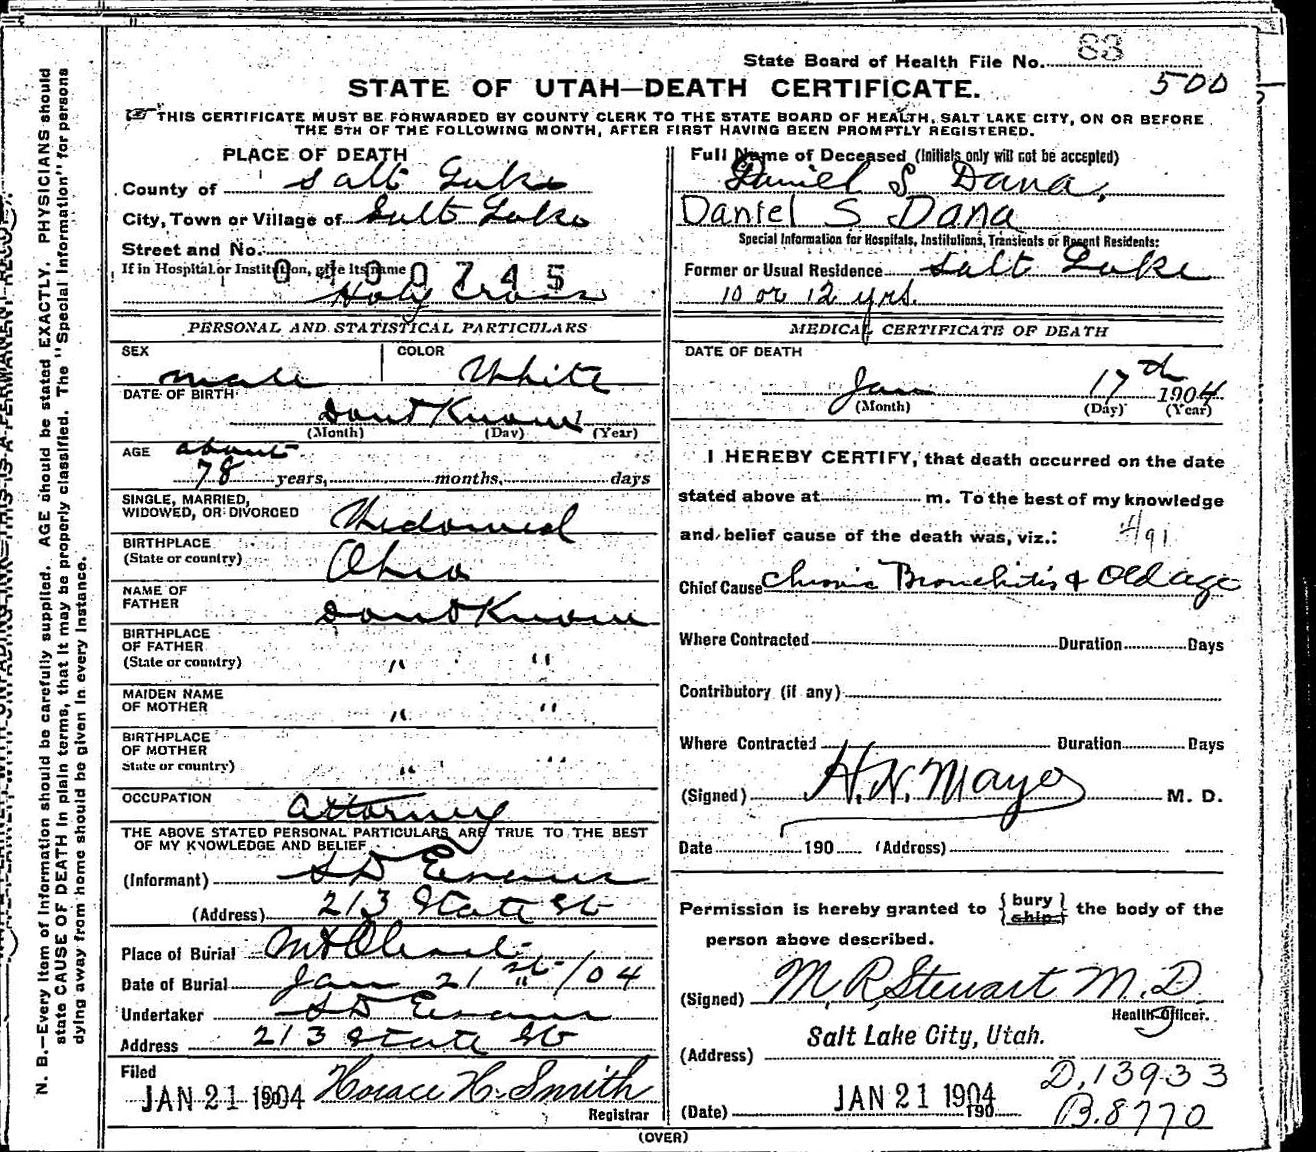 State Board of Health File No. 83
500
STATE OF UTAH—DEATH CERTIFICATE.
THIS CERTIFICATE MUST BE FORWARDED BY COUNTY CLERK TO THE STATE BOARD OF HEALTH, SALT LAKE CITY, ON OR BEFORE
THE 5TH OF THE FOLLOWING MONTH, AFTER FIRST HAVING BEEN PROMPTLY REGISTERED.
PLACE OF DEATH
County of Salt Lake
City, Town or Village of Salt Lake
Street and No.
If in Hospital or Institution, give its name
0400745
Holy Cross
PERSONAL AND STATISTICAL PARTICULARS
SEX male
COLOR White
DATE OF BIRTH
Dont Know
(Month) (Day) (Year)
AGE about
78 years, months, days
SINGLE, MARRIED,
WIDOWED, OR DIVORCED Widowed
BIRTHPLACE
(State or country) Ohio
NAME OF
FATHER Dont Know
BIRTHPLACE
OF FATHER
(State or country) " "
MAIDEN NAME
OF MOTHER " "
BIRTHPLACE
OF MOTHER
State or country) " "
OCCUPATION Attorney
THE ABOVE STATED PERSONAL PARTICULARS ARE TRUE TO THE BEST
OF MY KNOWLEDGE AND BELIEF
(Informant) S D Evans
(Address) 213 State St
Place of Burial Mt Olivet
Date of Burial Jan 21st /04
Undertaker S D Evans
Address 213 State St
Filed
JAN 21 1904 Horace H. Smith
Registrar
Full Name of Deceased (Initials only will not be accepted)
Daniel S Dana,
Daniel S Dana
Special Information for Hospitals, Institutions, Transients or Recent Residents:
Former or Usual Residence Salt Lake
10 or 12 yrs.
MEDICAL CERTIFICATE OF DEATH
DATE OF DEATH
Jan 17th 1904
(Month) (Day) (Year)
I HEREBY CERTIFY, that death occurred on the date
stated above at m. To the best of my knowledge
and belief cause of the death was, viz.:
91
Chief Cause Chronic Bronchitis & Old age
Where Contracted Duration Days
Contributory (if any)
Where Contracted Duration Days
(Signed) H. N. Mayo M. D.
Date 190 (Address)
Permission is hereby granted to {bury ship} the body of the
person above described.
(Signed) M. R. Stewart M. D.
Health Officer.
Salt Lake City, Utah.
(Address)
D. 13933
(Date) JAN 21 1904 190
B. 8770
(OVER)
N. B.—Every item of information should be carefully supplied. AGE should be stated EXACTLY. PHYSICIANS should
state CAUSE OF DEATH in plain terms, that it may be properly classified. The "Special Information" for persons
dying away from home should be given in every instance.